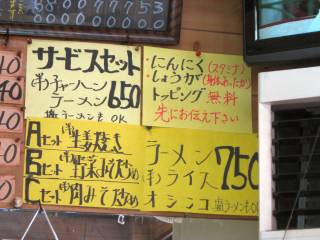 88007753
40
40
40
0
サービスセット
半チャーハン
ラーメン 650
塩ラーメンもOK
・にんにく(スタミナ)
・しょうが(身体あたたか)
トッピング無料
先にお伝え下さい
Aセット 生姜焼き
Bセット みそ炒め
Cセット 肉みそ炒め
ラーメン
半ライス 750
オシンコ 塩ラーメンもOK